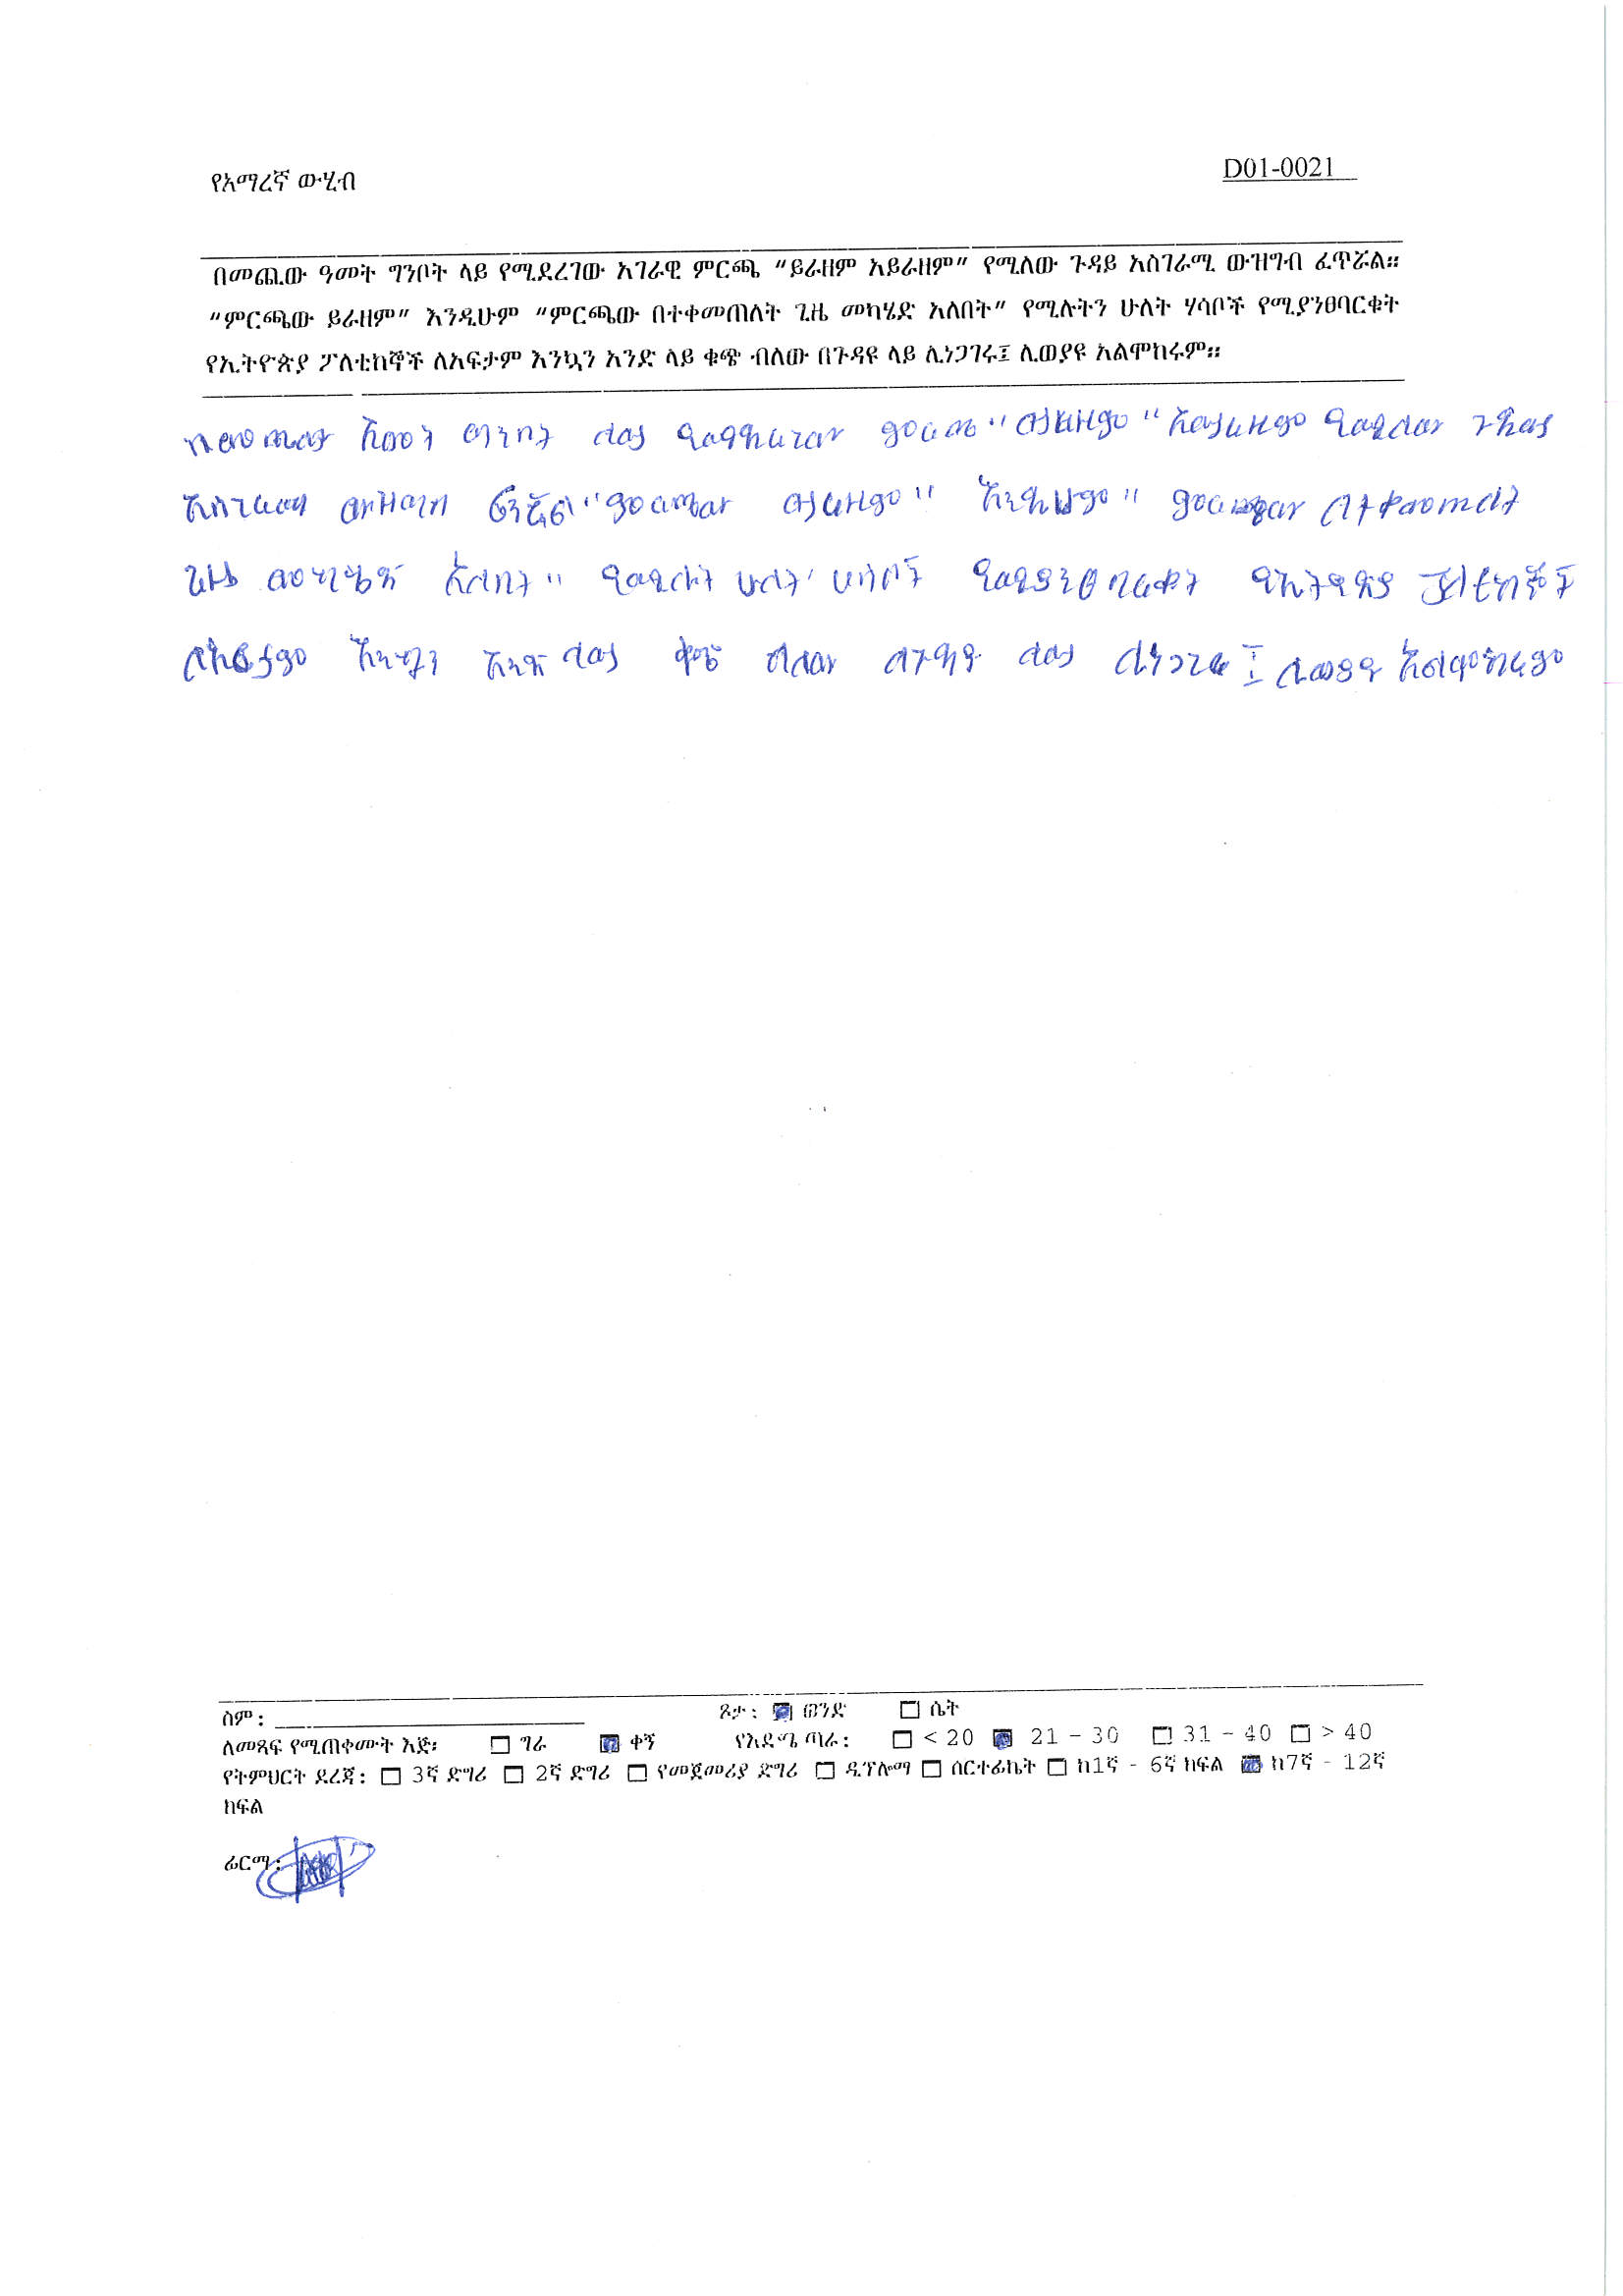 የአማረኛ ውሂብ D01-0021
በመጪው ዓመት ግንቦት ላይ የሚደረገው አገራዊ ምርጫ “ይራዘም አይራዘም” የሚለው ጉዳይ አስገራሚ ውዝግብ ፈጥሯል።
“ምርጫው ይራዘም” እንዲሁም “ምርጫው በተቀመጠለት ጊዜ መካሄድ አለበት” የሚሉትን ሁለት ሃሳቦች የሚያንፀባርቁት
የኢትዮጵያ ፖለቲከኞች ለአፍታም እንኳን አንድ ላይ ቁጭ ብለው በጉዳዩ ላይ ሊነጋገሩ፤ ሊወያዩ አልሞከሩም።
አመት ግንቦት ላይ የሚደረገው ምርጫ "ይራዘም" አይራዘም የሚለው ጉዳይ
አስገራሚ ውዝግብ "ምርጫው ይራዘም" እንዲሁም" ምርጫው በተቀመጠለት
ጊዜ መካሄድ አለበት" የሚሉት ሁለት ሀሳቦች የሚያንፀባርቁት የኢትዮጵያ ፖለቲከኞች
ለአፍታም እንኳን አንድ ላይ ቁጭ ብለው በጉዳዩ ላይ ሊነጋገሩ፤ ሊወያዩ አልሞከሩም
ስም: ጾታ: ወንድ ሴት
ለመጻፍ የሚጠቀሙት እጅ፡ ግራ ቀኝ የእድሜ ጣራ: < 20 21 – 30 31 – 40 > 40
የትምህርት ደረጃ: 3ኛ ድግሪ 2ኛ ድግሪ የመጀመሪያ ድግሪ ዲፕሎማ ሰርተፊኬት ከ1ኛ - 6ኛ ክፍል ከ7ኛ - 12ኛ
ክፍል
ፊርማ: